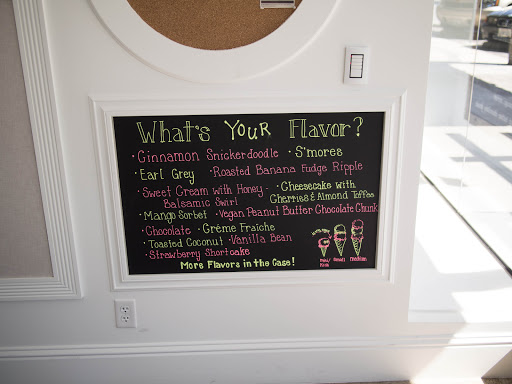 What's Your Flavor?
· Cinnamon Snickerdoodle · S'mores
· Earl Grey · Roasted Banana Fudge Ripple
· Sweet Cream with Honey - Balsamic Swirl · Cheesecake with Cherries & Almond Toffee
· Mango Sorbet · Vegan Peanut Butter Chocolate Chunk
· Chocolate · Créme Fraîche
· Toasted Coconut · Vanilla Bean
· Strawberry Shortcake
More Flavors in the Case!
Kids Small Medium